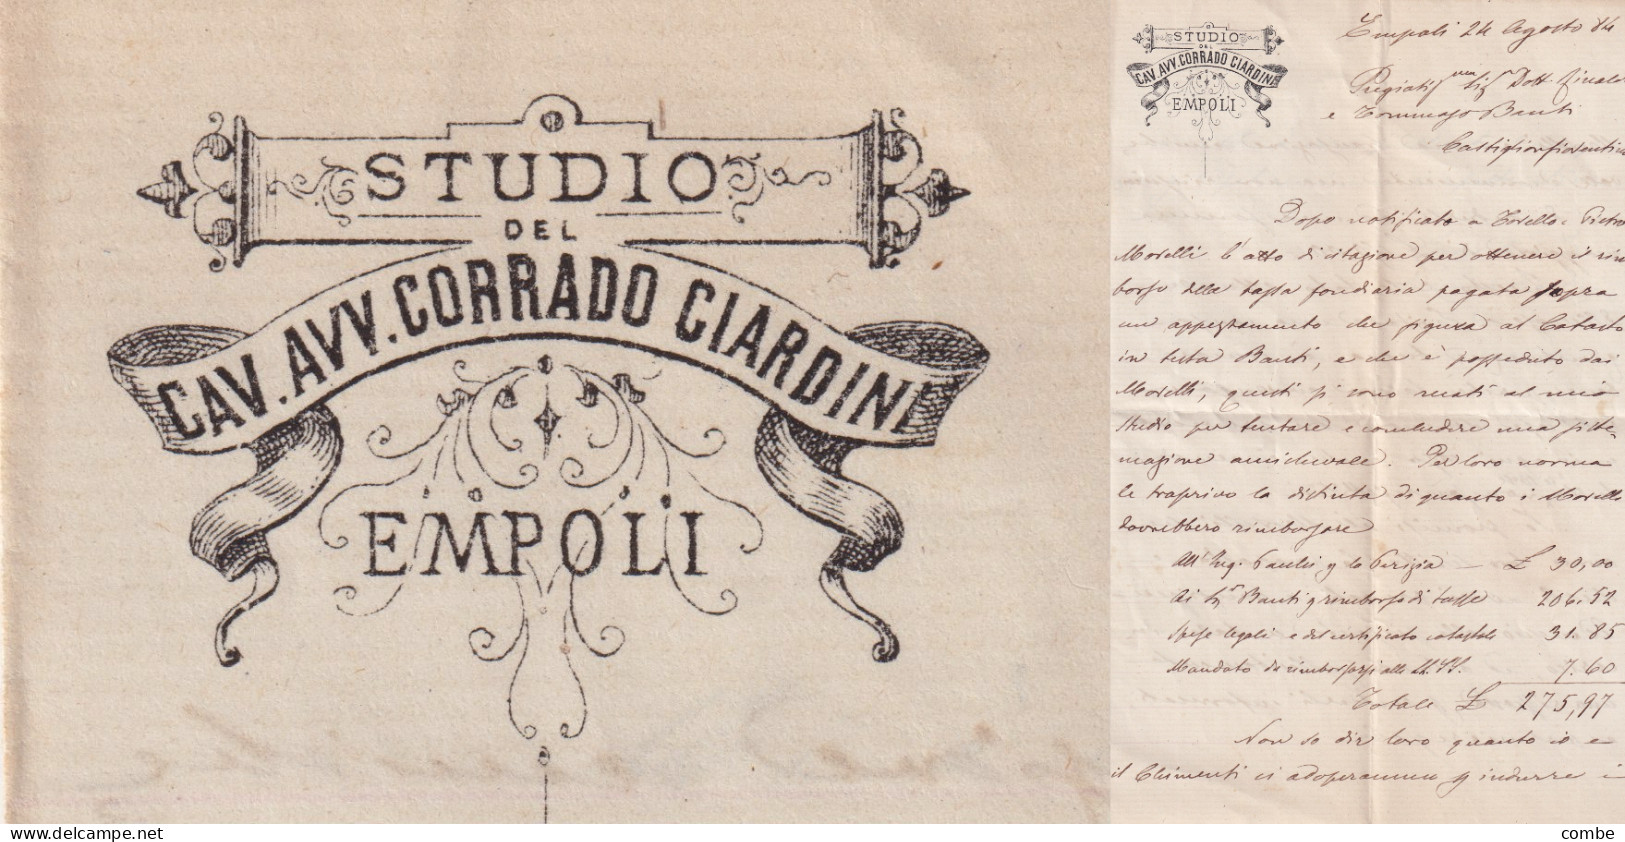 STUDIO
DEL
CAV. AVV. CORRADO CIARDINI
EMPOLI
STUDIO
DEL
CAV. AVV. CORRADO CIARDINI
EMPOLI
Empoli 24 Agosto 84
Pregiatmi Sigr Dott.
e Tommaso Banti
Castiglion fiorentino
Dopo notificato a Torello e Pietro
Morelli l'atto di citazione per ottenere il rim
borso della tassa fondiaria pagata sopra
un appezzamento che figura al Catasto
in testa Banti, e che è posseduto dai
Morelli, questi si sono recati al mio
Studio per tentare e concludere una siste-
mazione amichevole. Per loro norma
le trascrivo la distinta di quanto i Morelli
dovrebbero rimborsare
All'Ing. p la Perizia — £ 30,00
Ai Sigr Banti p rimborso di tasse 206.52
Spese legali e del certificato catastale 31.85
Mandato da rimborsarsi alle LL. SS. 7.60
Totale £ 275,97
Non so dir loro quanto io e
il Chimenti ci adoperammo p indurre i
www.delcampe.net
combe